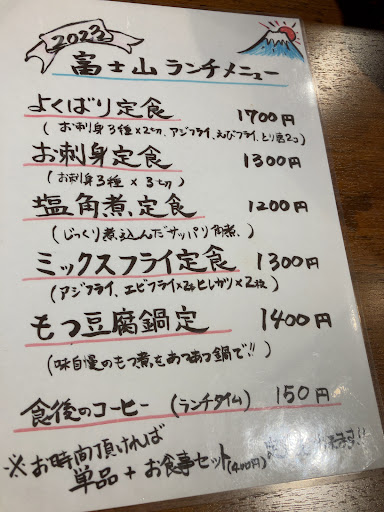 2023
富士山 ランチメニュー
よくばり定食 1700円
(お刺身3種×2切、アジフライ、えびフライ、とり唐2コ)
お刺身定食 1300円
(お刺身3種 × 3切)
塩角煮定食 1200円
(じっくり煮込んだサッパリ角煮、)
ミックスフライ定食 1300円
(アジフライ、エビフライ×2本 ヒレカツ×2枚)
もつ豆腐鍋定 1400円
(味自慢のもつ煮をあつあつ鍋で!!)
食後のコーヒー (ランチタイム) 150円
※お時間頂ければ
単品+お食事セット(400円)